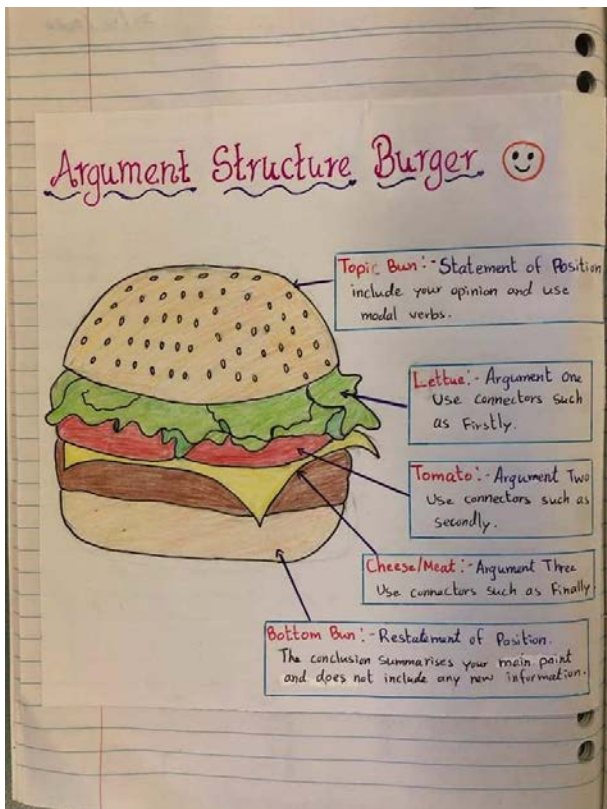 Argument Structure Burger
Topic Bun:- Statement of Position
include your opinion and use
modal verbs.
Lettue:- Argument One
Use connectors such
as Firstly.
Tomato:- Argument Two
Use connectors such as
secondly.
Cheese/Meat:- Argument Three
Use connectors such as Finally
Bottom Bun:- Restatement of Position.
The conclusion summarises your main point
and does not include any new information.